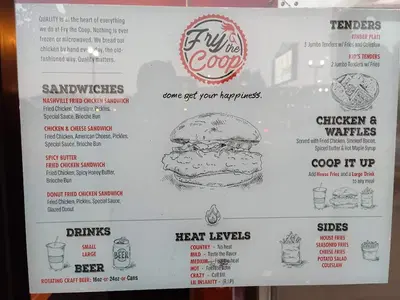 QUALITY is at the heart of everything
we do at Fry the Coop. Nothing is ever
frozen or microwaved. We bread our
chicken by hand every day, the old-
fashioned way. Quality matters.
Fry
the
Coop
come get your happiness.
SANDWICHES
NASHVILLE FRIED CHICKEN SANDWICH
Fried Chicken, Coleslaw, Pickles,
Special Sauce, Brioche Bun
CHICKEN & CHEESE SANDWICH
Fried Chicken, American Cheese, Pickles,
Special Sauce, Brioche Bun
SPICY BUTTER
FRIED CHICKEN SANDWICH
Fried Chicken, Spicy Honey Butter,
Brioche Bun
DONUT FRIED CHICKEN SANDWICH
Fried Chicken, Pickles, Special Sauce,
Glazed Donut
TENDERS
PLATE
3 Jumbo Tenders w/ Fries and Coleslaw
TENDERS
Jumbo Tenders w/ Fries
CHICKEN &
WAFFLES
Served with Fried Chicken, Smoked Bacon,
Spiced Butter & hot Maple Syrup
COOP IT UP
Add House Fries and a Large Drink
to any meal
DRINKS
SMALL
LARGE
BEER
ROTATING CRAFT BEER: 16oz or 24oz Cans
BEER
HEAT LEVELS
COUNTRY - No heat
MILD - Taste the flavor
MEDIUM -
HOT -
CRAZY - Call
LIL INSANITY - (R.I.P)
SIDES
HOUSE FRIES
SEASONED FRIES
CHEESE FRIES
POTATO SALAD
COLESLAW